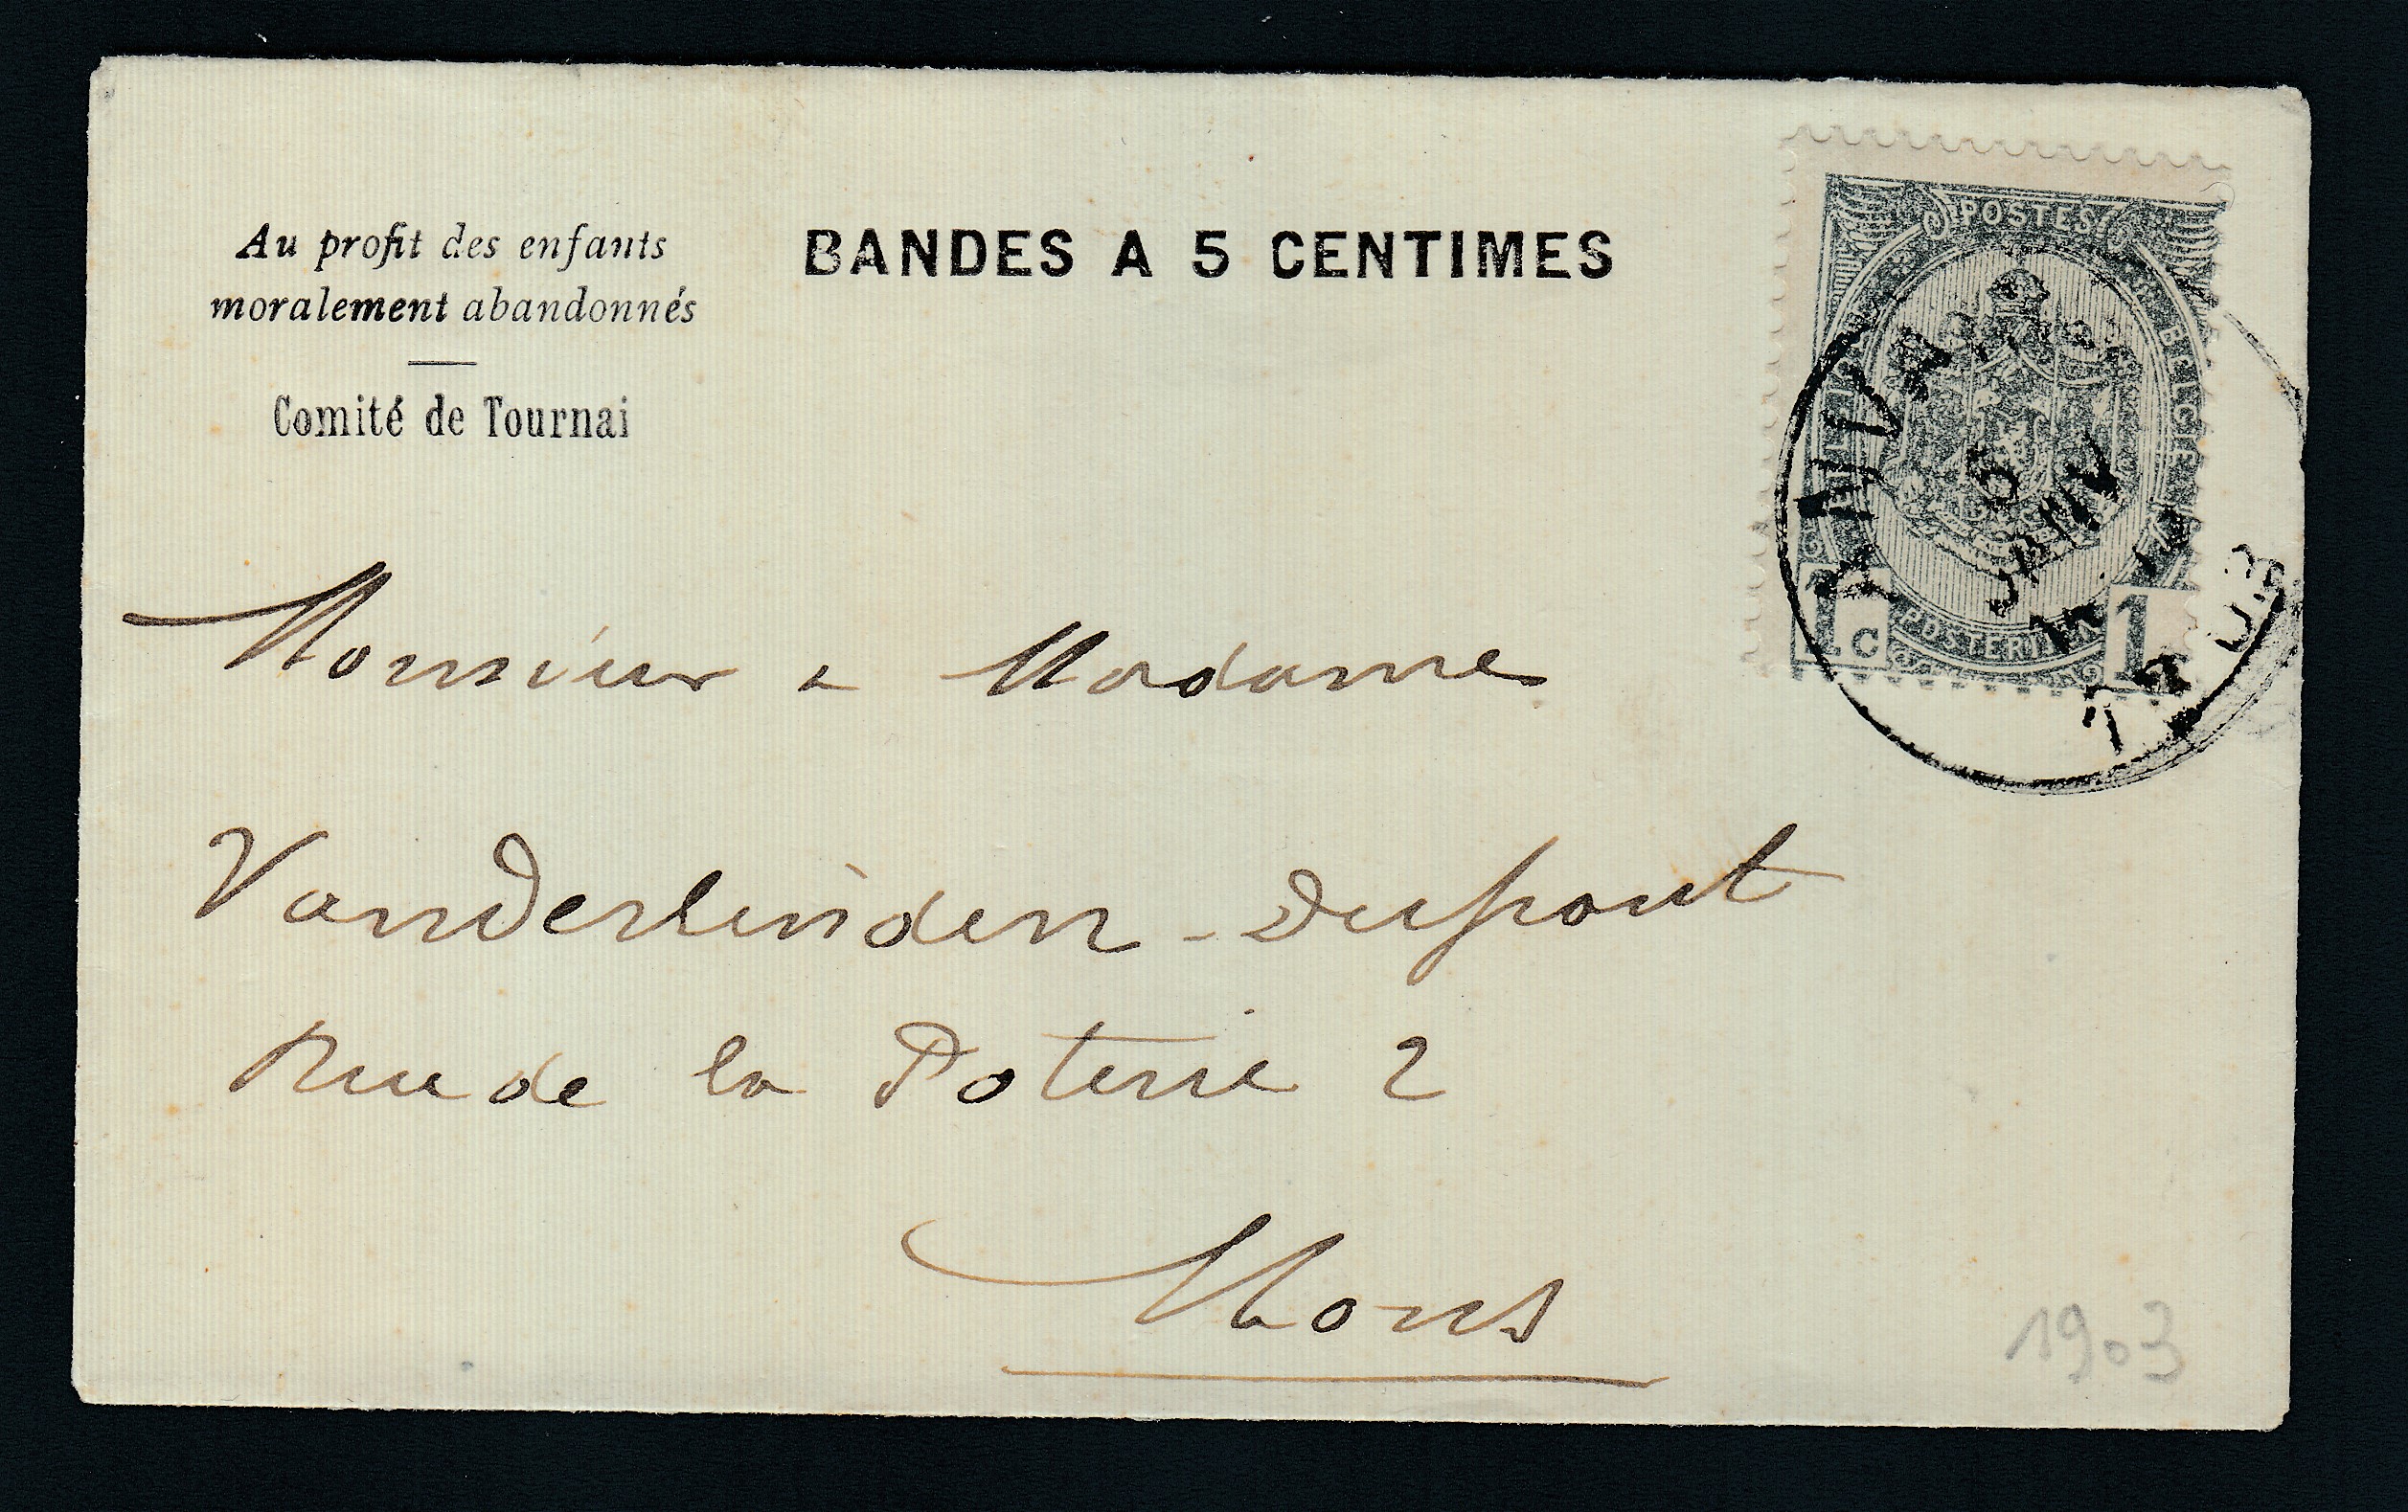 Au profit des enfants
moralement abandonnés
Comité de Tournai
BANDES A 5 CENTIMES
POSTES
BELGIE
1c
1
5
JANV
Monsieur & Madame
Vanderlinden-Dupont
Rue de la Poterie 2
Mons
1903